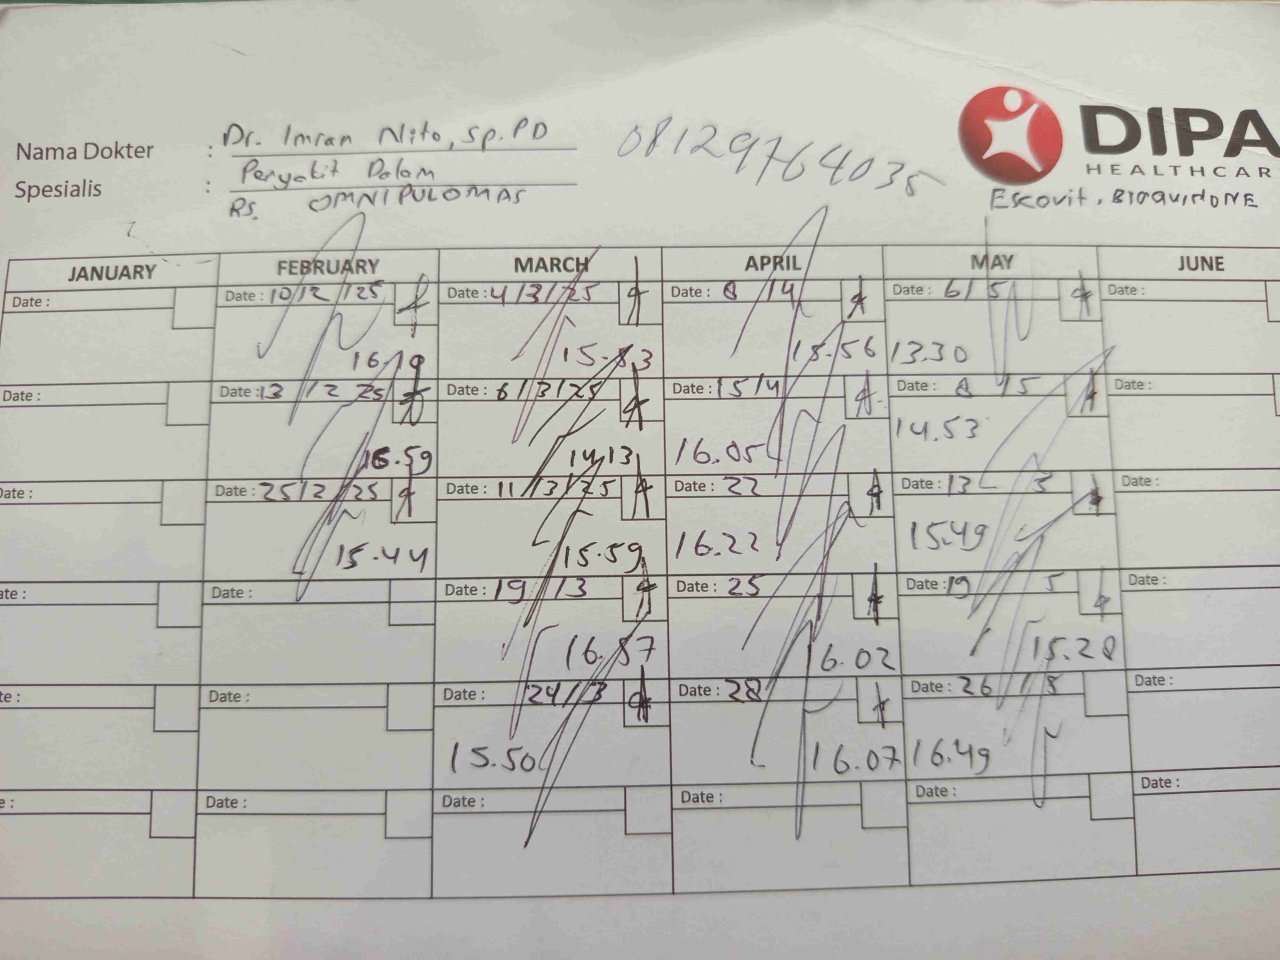 DIPA
HEALTHCAR
Nama Dokter : Dr. Imran Nito, sp.PD
08129764035
Spesialis : Penyakit Dalam
RS. OMNI PULOMAS
Escovit, BIOQUIRDONE
JANUARY FEBRUARY MARCH APRIL MAY JUNE
Date : Date : 10/2/25 Date : 4/3/25 Date : 8/4 Date : 6/5 Date :
16.19 15.53 15.56 13.30
Date : Date : 13/2 25 Date : 6/3/25 Date : 15/4 Date : 8/5 Date :
16.59 14.13 16.05 14.53
Date : Date : 25/2/25 Date : 11/3/25 Date : 22 Date : 13 5 Date :
15.44 15.59 16.22 15.49
ate : Date : Date : 19/3 Date : 25 Date : 19 5 Date :
16.57 16.02 15.28
te : Date : Date : 24/3 Date : 28 Date : 26/5 Date :
15.50 16.07 16.49
e : Date : Date : Date : Date : Date :